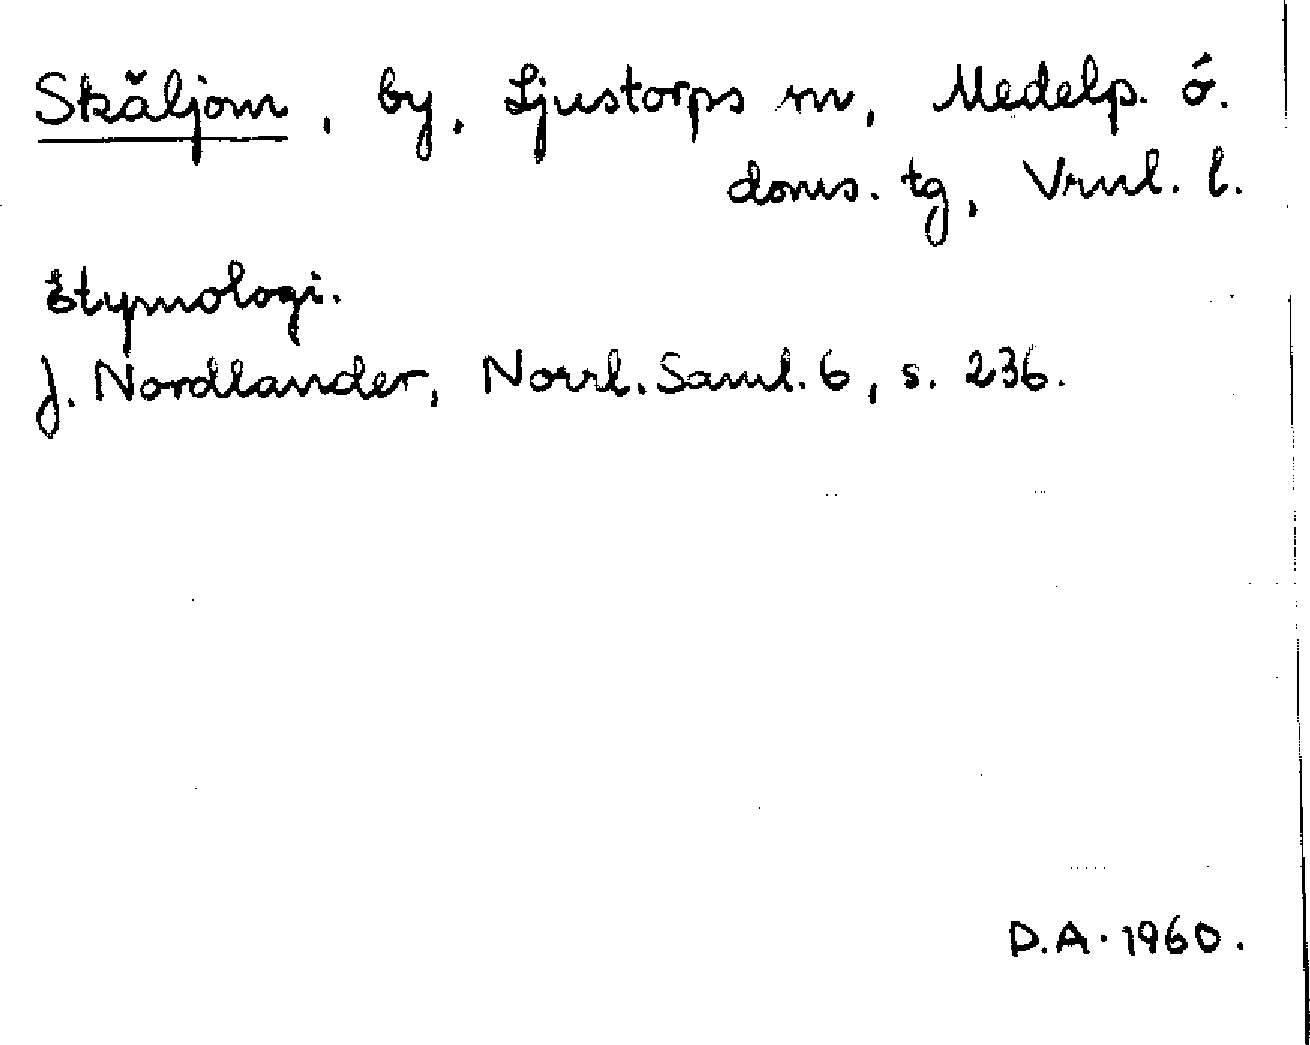 Skäljom, by, Ljustorps sn, Medelp. ö.
doms. tg, Vrnl. l.
Etymologi.
J. Nordlander, Norrl. Saml. 6, s. 236.
D.A. 1960.